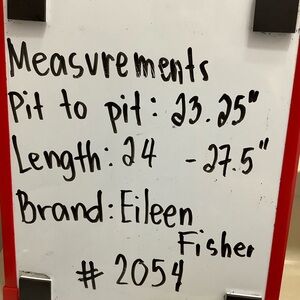 Measurements
Pit to pit: 23.25"
Length: 24 - 27.5"
Brand: Eileen
Fisher
# 2054